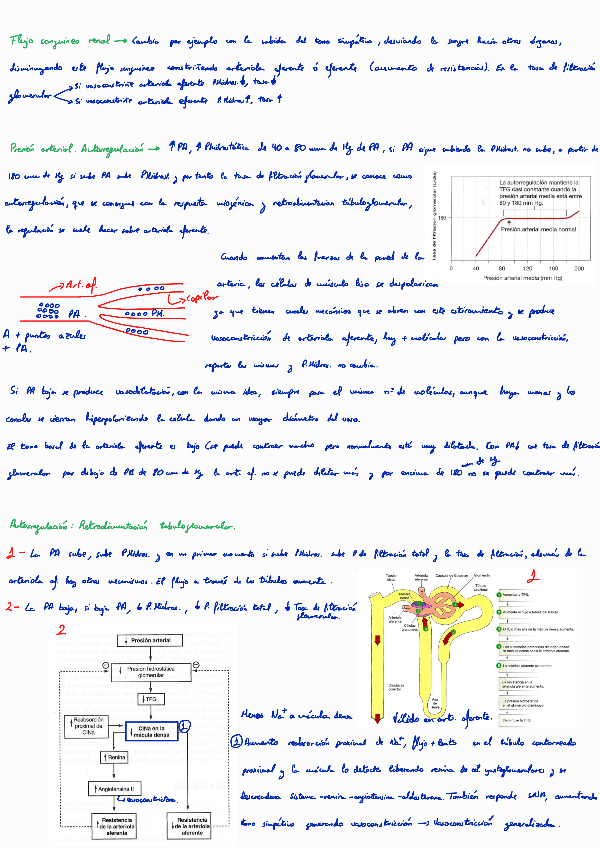 Flujo sanguíneo renal → Cambia por ejemplo con la subida del tono simpático, desviando la sangre hacia otros órganos,
disminuyendo este flujo sanguíneo constriñendo arteriola aferente ó eferente (aumento de resistencias). En la tasa de filtración
glomerular → Si vasoconstriñe arteriola aferente P.Hidros.↓, tasa ↓
→ Si vasoconstriñe arteriola eferente P.Hidros.↑, tasa ↑
Presión arterial. Autorregulación → ↑PA, ↑Phidrostática de 40 a 80 mm de Hg de PA, si PA sigue subiendo la PHidrost. no sube, a partir de
180 mm de Hg si sube PA sube PHidrost. y por tanto la tasa de filtración glomerular, se conoce como
autorregulación, que se consigue con la respuesta miogénica y retroalimentación túbuloglomerular,
la regulación se suele hacer sobre arteriola aferente.
Tasa de filtración glomerular
La autorregulación mantiene la
TFG casi constante cuando la
presión arterial media está entre
80 y 180 mm Hg.
180
Presión arterial media normal
0
0 40 80 120 160 200
Presión arterial media (mm Hg)
Cuando aumentan las fuerzas de la pared de la
arteria, las células de músculo liso se despolarizan
ya que tienen canales mecánicos que se abren con este estiramiento y se produce
vasoconstricción de arteriola aferente, hay + moléculas pero con la vasoconstricción,
reparte las mismas y P.Hidros. no cambia.
Art. af.
Capilar
PA.
PH.
A + puntos azules
+ PA.
Si PA baja se produce vasodilatación, con la misma idea, siempre pasa el mismo nº de moléculas, aunque haya menos y los
canales se cierran hiperpolarizando la célula dando un mayor diámetro del vaso.
El tono basal de la arteriola aferente es bajo (se puede contraer mucho pero normalmente está muy dilatada. Con PA↓ cae tasa de filtración
glomerular por debajo de PA de 80 mm de Hg la art. af. no se puede dilatar más y por encima de 180 mm de Hg no se puede contraer más.
Autorregulación: Retroalimentación túbuloglomerular.
1 - La PA sube, sube PHidros. y en un primer momento si sube PHidros. sube P de filtración total y la tasa de filtración, además de la
arteriola af. hay otros mecanismos. El flujo a través de los túbulos aumenta.
2 - La PA baja, si baja PA, ↓ P.Hidros., ↓ P filtración total, ↓ Tasa de filtración
glomerular.
1
Túbulo distal
Arteriola eferente
Cápsula de Bowman
Glomérulo
Túbulo proximal
Mácula densa
Arteriola aferente
Células granulosas
Conducto colector
Asa de Henle
1 Aumenta la TFG.
2 Aumenta el flujo a través del túbulo.
3 El flujo más allá de la mácula densa aumenta.
La resistencia en la
arteriola aferente aumenta.
Disminuye la TFG.
2
↓ Presión arterial
↓ Presión hidrostática
glomerular
↓ TFG
↑ Reabsorción
proximal de
ClNa
↓ ClNa en la
mácula densa
1
↑ Renina
↑ Angiotensina II
vasoconstrictora.
↑ Resistencia
de la arteriola
eferente
↓ Resistencia
de la arteriola
aferente
Menos Na+ a mácula densa
Válido en art. aferente.
1 Aumenta reabsorción proximal de Na+, flujo + lento en el túbulo contorneado
proximal y la mácula lo detecta liberando renina las cél. yuxtaglomerulares y se
desencadena sistema-renina-angiotensina-aldosterona. También responde SNA, aumentando
tono simpático generando vasoconstricción → Vasoconstricción generalizada.